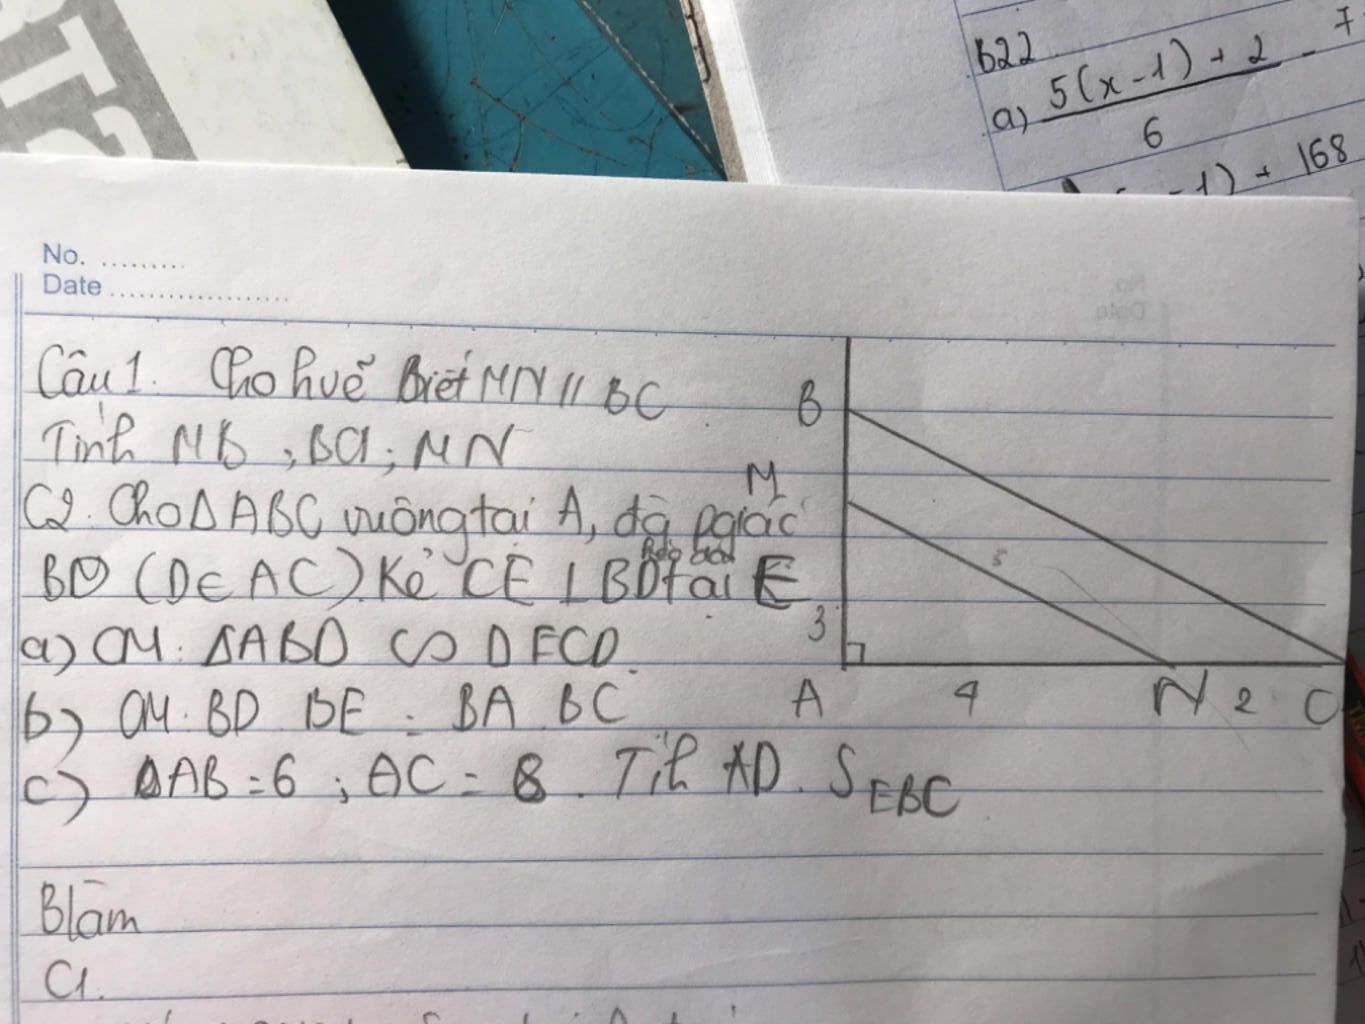 b22
a) 5(x-1)+2 - 7
6
-1) + 168
No. .........
Date ....................
Câu 1. Cho hvẽ Biết MN // BC
Tính MB ; BC ; MN
C2. Cho Δ ABC vuông tại A, đg pgiác
BD (D∈AC). Kẻ CE ⊥ BD tại E
a) CM: ΔABD ∽ D ECD.
b) CM. BD BE = BA BC
c) AB = 6 ; AC = 8. Tíh AD. S EBC
Blàm
C1.
B
M
5
3
A
4
N
2
C